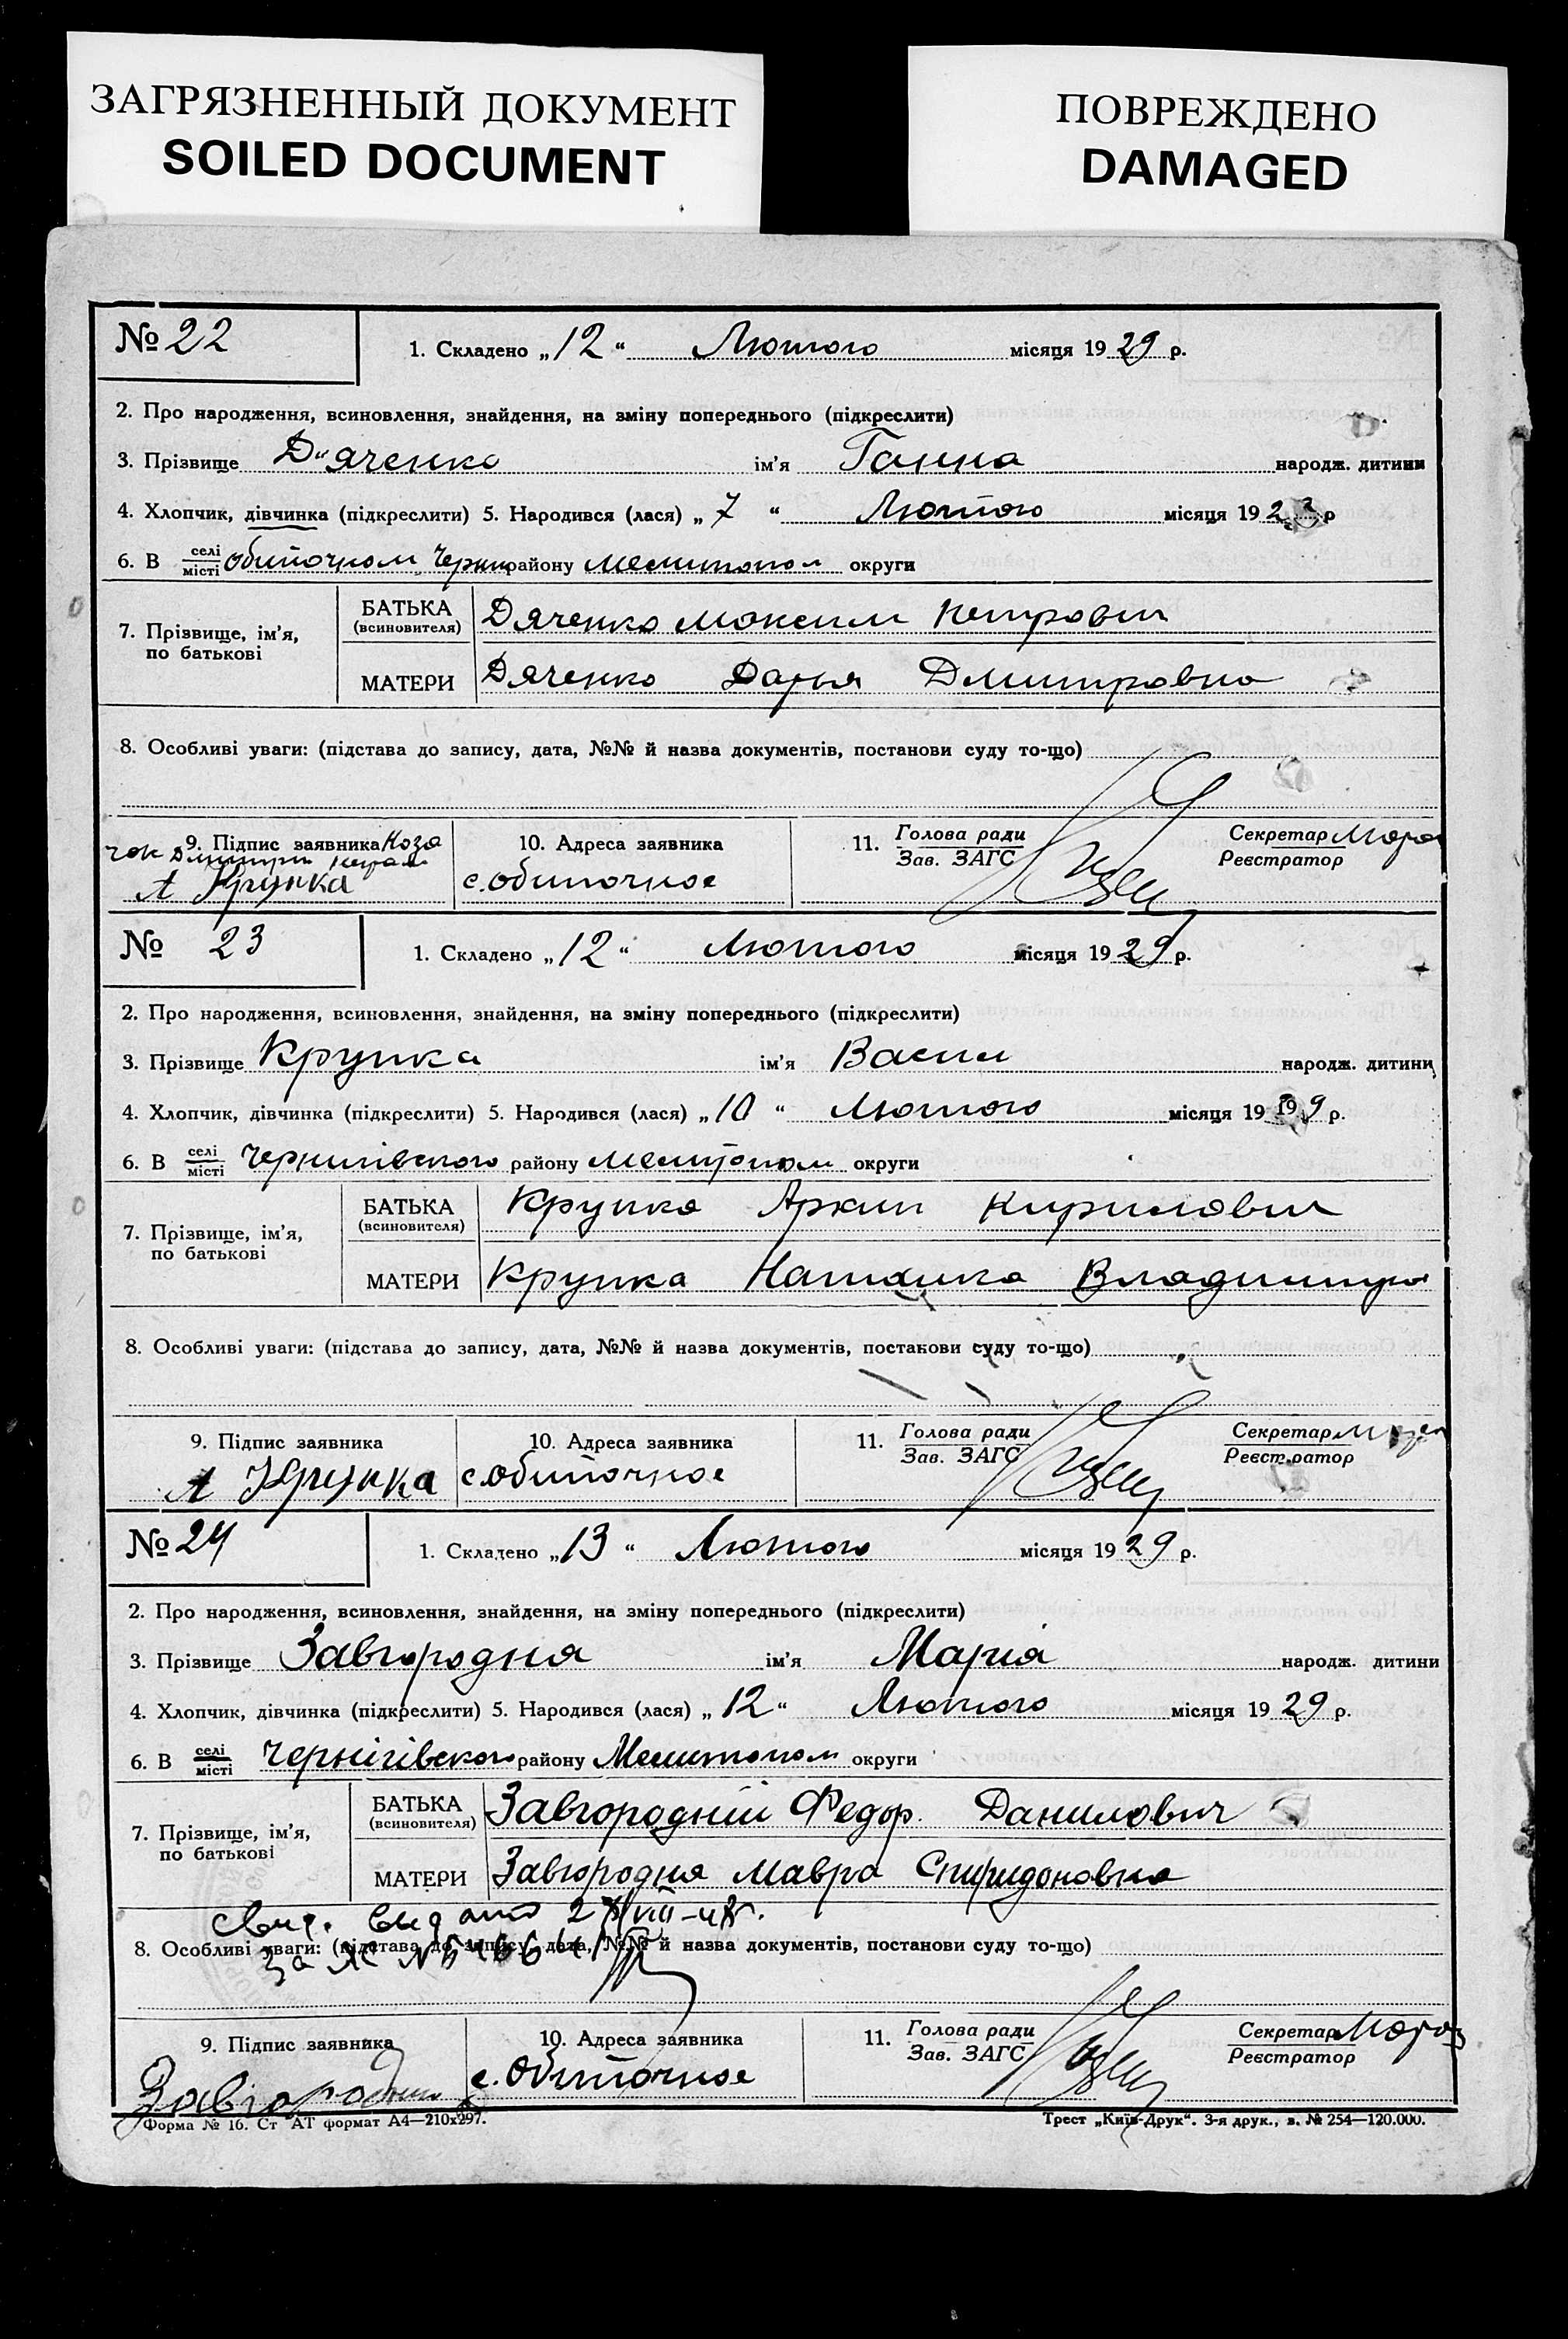 ЗАГРЯЗНЕННЫЙ ДОКУМЕНТ
SOILED DOCUMENT
ПОВРЕЖДЕНО
DAMAGED
№ 22
1. Складено „12“ Лютого місяця 1929 р.
2. Про народження, всиновлення, знайдення, на зміну попереднього (підкреслити)
3. Прізвище Д"яченко ім'я Ганна народж. дитини
4. Хлопчик, дівчинка (підкреслити) 5. Народився (лася) „7“ Лютого місяця 192 р
6. В селі/місті Обиточном Черниг району Мелитопол округи
7. Прізвище, ім'я, по батькові
БАТЬКА (всиновителя) Дяченко Максим Петрович
МАТЕРИ Дяченко Дарья Дмитровна
8. Особливі уваги: (підстава до запису, дата, №№ й назва документів, постанови суду то-що)
9. Підпис заявника Коза
чок Дмитри
А Крупка
10. Адреса заявника
с. Обиточное
11. Голова ради
Зав. ЗАГС
Секретар Мороз
Реєстратор
№ 23
1. Складено „12“ Лютого місяця 1929 р.
2. Про народження, всиновлення, знайдення, на зміну попереднього (підкреслити)
3. Прізвище Крупка ім'я Васил народж. дитини
4. Хлопчик, дівчинка (підкреслити) 5. Народився (лася) „10“ Лютого місяця 19 р.
6. В селі/місті Чернигівского району Мелитопол округи
7. Прізвище, ім'я, по батькові
БАТЬКА (всиновителя) Крупка Архип Кирилович
МАТЕРИ Крупка Наталка Владимиро
8. Особливі уваги: (підстава до запису, дата, №№ й назва документів, постанови суду то-що)
9. Підпис заявника
А Крупка
10. Адреса заявника
с Обиточное
11. Голова ради
Зав. ЗАГС
Секретар Мороз
Реєстратор
№ 24
1. Складено „13“ Лютого місяця 1929 р.
2. Про народження, всиновлення, знайдення, на зміну попереднього (підкреслити)
3. Прізвище Завгородня ім'я Марія народж. дитини
4. Хлопчик, дівчинка (підкреслити) 5. Народився (лася) „12“ Лютого місяця 1929 р.
6. В селі/місті Чернігівского району Мелитопол округи
7. Прізвище, ім'я, по батькові
БАТЬКА (всиновителя) Завгородній Федор Данилович
МАТЕРИ Завгородня Мавра Спиридоновна
Свид. выдано
8. Особливі уваги: (підстава до запису, дата, №№ й назва документів, постанови суду то-що)
за №
9. Підпис заявника
Завгородни
10. Адреса заявника
с. Обиточное
11. Голова ради
Зав. ЗАГС
Секретар Мороз
Реєстратор
Форма № 16. Ст АТ формат А4—210х297.
Трест „Київ-Друк“. 3-я друк., з. № 254—120.000.